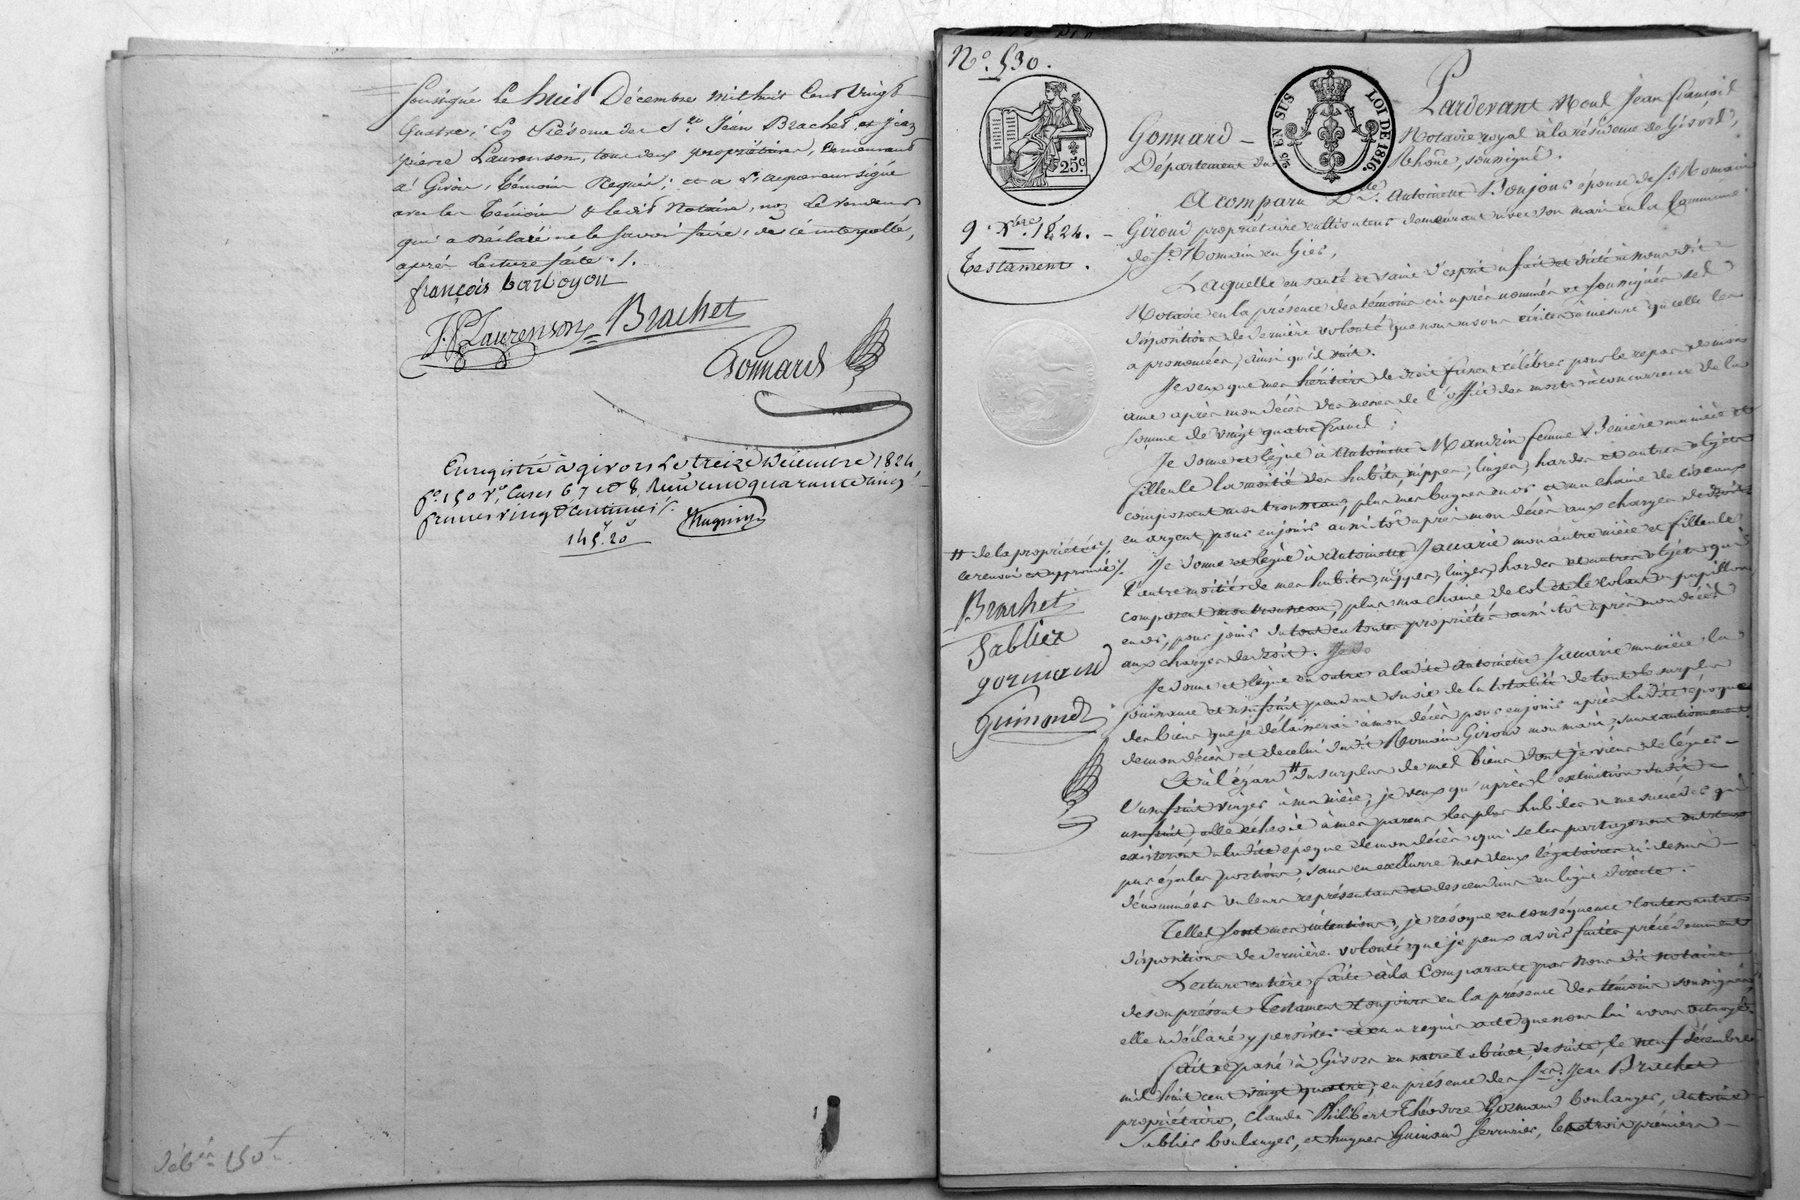 Soussigné Le huit Décembre mil huit Cent Vingt
quatre; En Présence des Srs Jean Brachet et Jean
pierre Laurenson, tous deux propriétaires, demeurant
à Givors, Témoins Requis; et a l'acquereur signé
avec les Témoins & ledit Notaire, non Le vendeur
qui a déclaré ne le Savoir faire, de ce interpellé,
après Lecture faite ./.
françois barboyon
J. P. Laurenson Brachet
Gonnard
Enregistré à givors Le treize décembre 1824
fo 150 Vo, Cases 6, 7 et 8, Reçu cent quarante cinq
francs vingt Centimes
145. 20
No 530.
25c.
25 EN SUS LOI DE 1816.
9. Xbre 1824.
Testament.
Pardevant Me Jean François
Gonnard Notaire royal à la résidence de Givors,
Département du Rhône, soussigné.
A comparu De Antoinette Bonjour épouse de St Romain
Giroud propriétaire cultivateur demeurant avec son mari en la Commune
de St Romain en Gier,
Laquelle en santé et saine d'esprit a fait et dicté à nous dit
Notaire en la présence des témoins ci après nommés et soussignés ses
dispositions de dernière volonté que nous avons écrites à mesure qu'elle les
a prononcées, ainsi qu'il suit.
Je veux que mes héritiers de droit fassent célébrer pour le repos de mon
ame après mon décès des messes de l'office des morts à concurrence de la
somme de vingt quatre francs;
Je donne et lègue à Antoinette Maudrin femme Denière ma nièce et
filleule la moitié des habits, nippes, linges, hardes et autres objets
composant mon trousseau, plus mes bagues en or et ma chaine de ciseaux
en argent, pour en jouir aussitôt après mon décès aux charges de droit.
Je donne et lègue à Antoinette Jamarie mon autre nièce et filleule
l'autre moitié de mes habits, nippes, linges, hardes et autres objets qui
composent mon trousseau, plus ma chaine de col et le volant en papillon
en or, pour jouir du tout en toute propriété aussitôt après mon décès
aux charges de droit.
Je donne et lègue en outre à ladite Antoinette Jamarie ma nièce la
jouissance et usufruit pendant sa vie de la totalité de tout le surplus
des biens que je délaisserai à mon décès pour en jouir après ladite époque
de mon décès et de celui dudit Romain Giroud mon mari, sans cautionnement
Et à l'égard # du surplus de mes biens dont je viens de léguer
l'usufruit viager à ma nièce, je veux qu'après l'extinction dudit
usufruit, elle échoie à mes parens les plus habiles à me succéder qui
existeront à ladite époque de mon décès qui se les partageront entr'eux
par égales portions, sans en exclure mes deux légataires ci dessus
dénommées ou leurs représentans et descendans en ligne directe.
Telles sont mes intentions, je révoque en conséquence toutes autres
dispositions de dernière volonté que je peux avoir faites précédemment
Lecture entière faite à la Comparante par nous dit notaire
de son présent Testament toujours en la présence des témoins soussignés
elle a déclaré y persister et en a requis acte que nous lui avons octroyé.
Fait et passé à Givors en notre Cabinet, de suite, le neuf décembre
mil huit cent vingt quatre, en présence des Srs Jean Brachet
propriétaire, Claude Philibert Théodore Gormand boulanger, Antoine
Sablier boulanger, et hugues Guimond serrurier, les trois premiers
# de la propriété
le renvoi est approuvé
Brachet
Sablier
gormand
Guimond